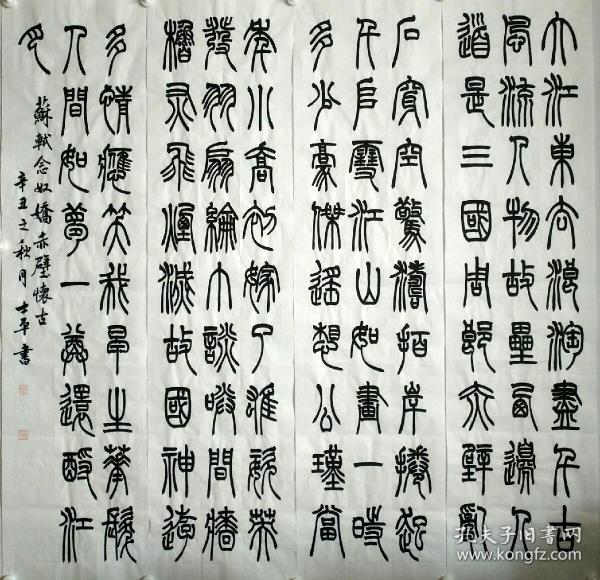 大江東去浪淘盡千古
風流人物故壘西邊人
道是三國周郎赤壁亂
石穿空驚濤拍岸捲起
千堆雪江山如畫一時
多少豪傑遙想公瑾當
年小喬初嫁了雄姿英
發羽扇綸巾談笑間檣
櫓灰飛煙滅故國神遊
多情應笑我早生華髮
人間如夢一尊還酹江
月
蘇軾念奴嬌赤壁懷古
辛丑之秋月士平書
孔夫子旧书网
www.kongfz.com